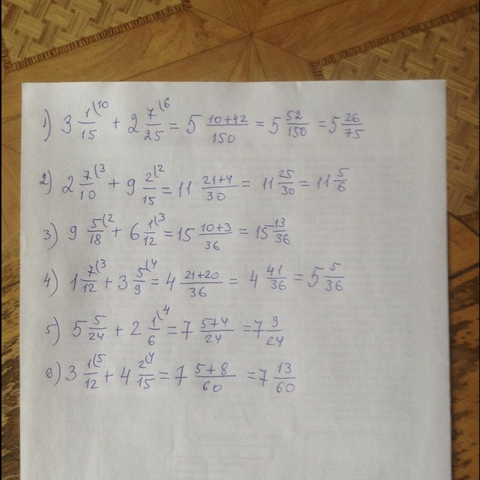 1) 3 1/15 (10 + 2 7/25 (6 = 5 10+42/150 = 5 52/150 = 5 26/75
2) 2 7/10 (3 + 9 2/15 (2 = 11 21+4/30 = 11 25/30 = 11 5/6
3) 9 5/18 (2 + 6 1/12 (3 = 15 10+3/36 = 15 13/36
4) 1 7/12 (3 + 3 5/9 (4 = 4 21+20/36 = 4 41/36 = 5 5/36
5) 5 5/24 + 2 1/6 (4 = 7 5+4/24 = 7 9/24
6) 3 1/12 (5 + 4 2/15 (4 = 7 5+8/60 = 7 13/60